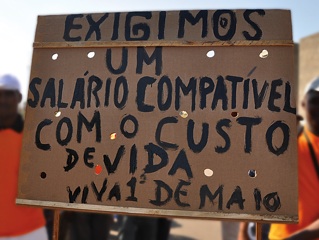 EXIGIMOS
UM
SALÁRIO COMPATÍVEL
COM O CUSTO
DE VIDA
VIVA 1º DE MAIO